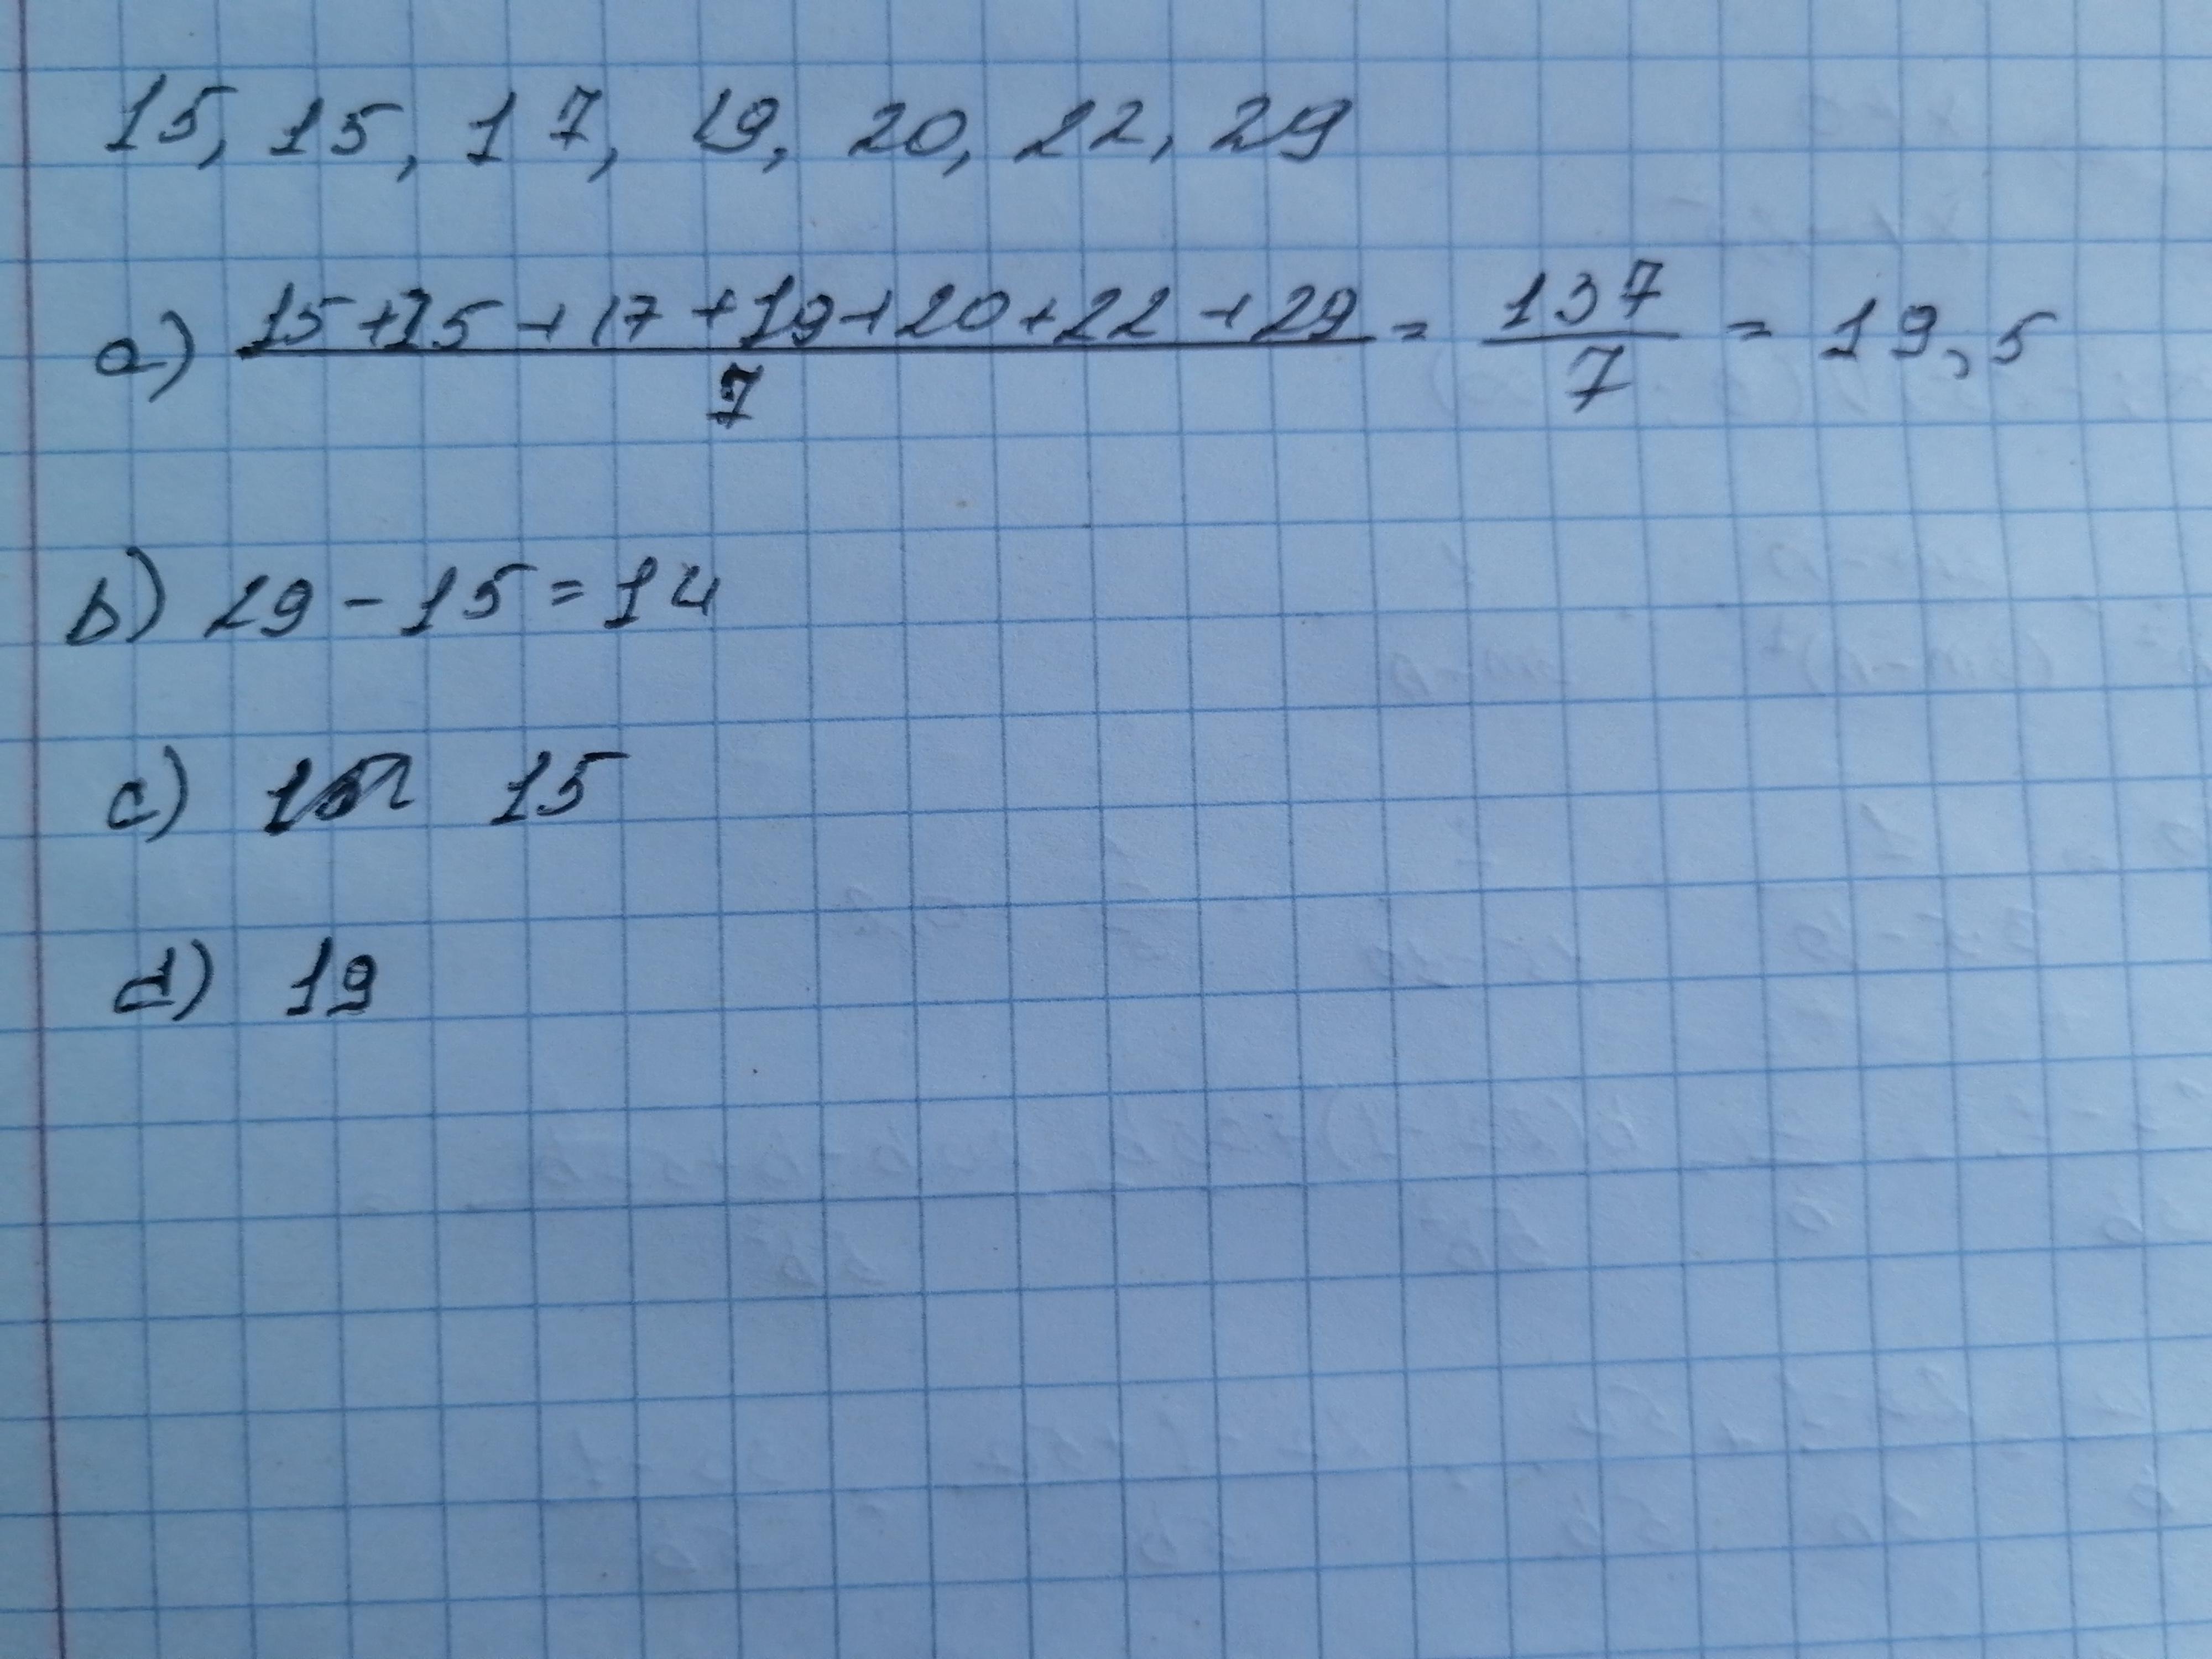 15, 15, 17, 19, 20, 22, 29
a) (15+15+17+19+20+22+29)/7 = 137/7 = 19,5
b) 29 - 15 = 14
c) 15
d) 19